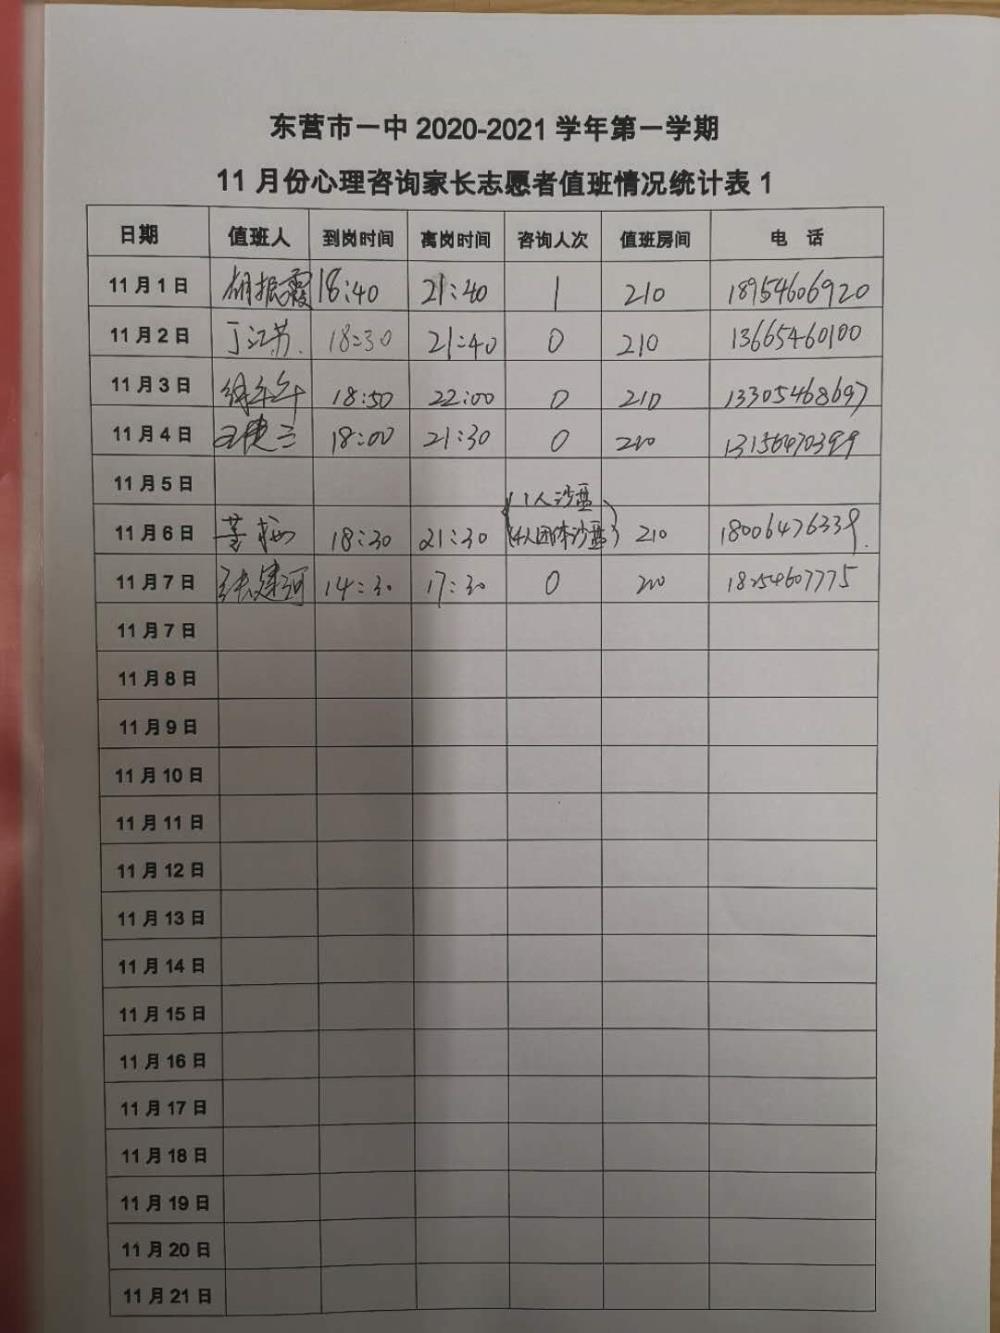 东营市一中 2020-2021 学年第一学期
11 月份心理咨询家长志愿者值班情况统计表 1
日期 值班人 到岗时间 离岗时间 咨询人次 值班房间 电 话
11 月 1 日 胡振霞 18:40 21:40 1 210 18954606920
11 月 2 日 丁江苏 18:30 21:40 0 210 13665460100
11 月 3 日 18:50 22:00 0 210 13305468697
11 月 4 日 18:00 21:30 0 210
11 月 5 日
1人沙盘
11 月 6 日 18:30 21:30 (4人团体沙盘) 210 18006476339
11 月 7 日 张建河 14:30 17:30 0 210 18254607775
11 月 7 日
11 月 8 日
11 月 9 日
11 月 10 日
11 月 11 日
11 月 12 日
11 月 13 日
11 月 14 日
11 月 15 日
11 月 16 日
11 月 17 日
11 月 18 日
11 月 19 日
11 月 20 日
11 月 21 日